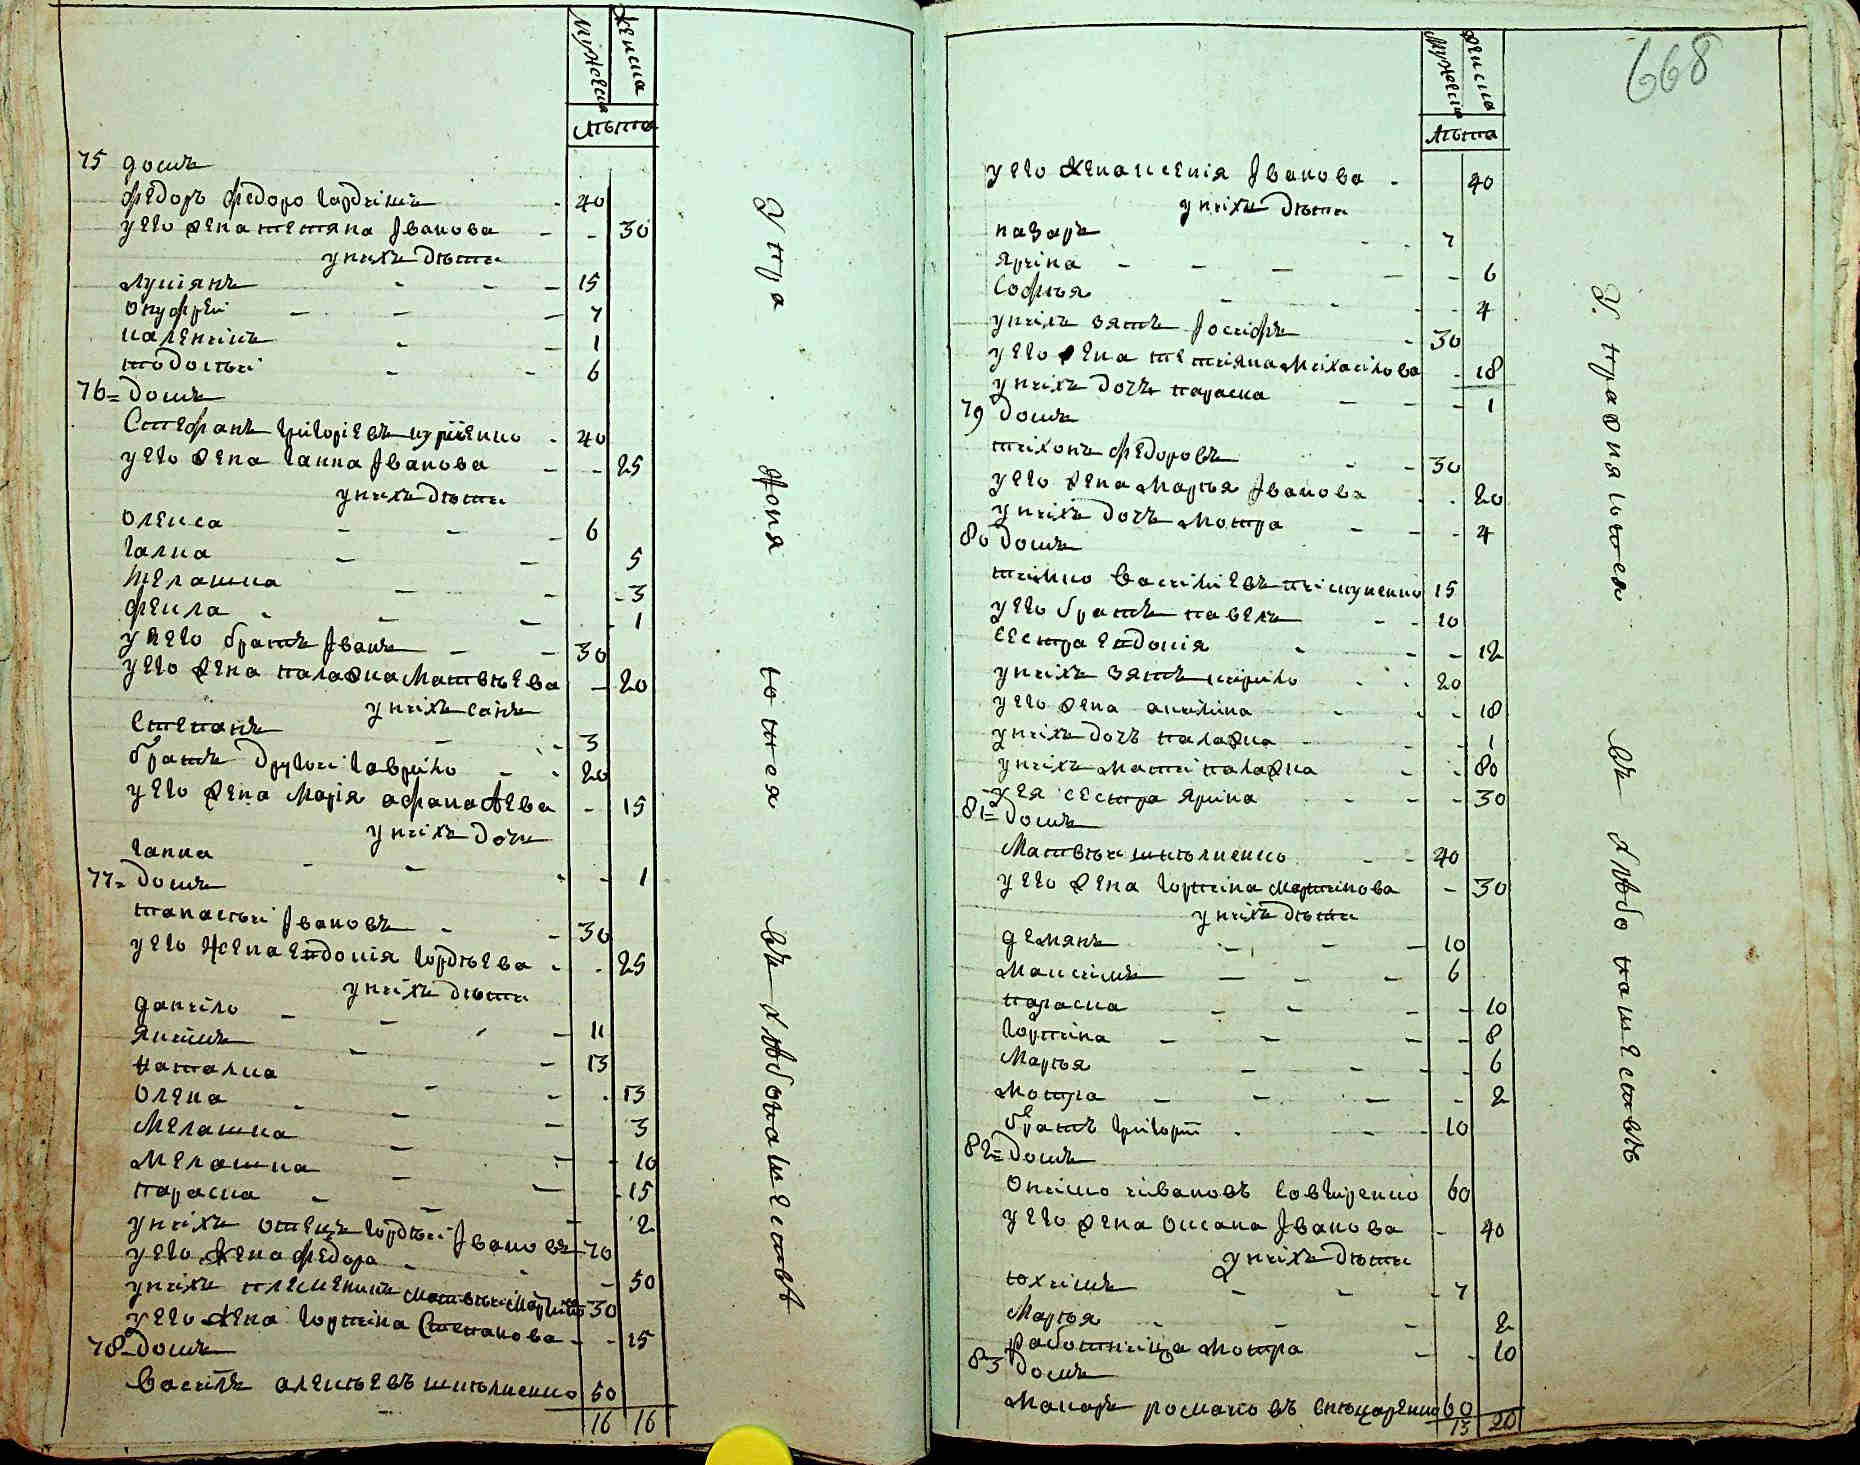 мужеска женска
лѣта
75 домъ
федоръ федоро гордѣинъ 40
у его жена тетяна Іванова 30
у нихъ дѣти
лукіянъ 15
онуфрей 7
каленикъ 1
тодоский 6
76 = домъ
Стефанъ григоріевъ куріенко 40
у его жена ганна Іванова 25
у нихъ дѣти
олекса 6
галка 5
мелашка 3
фекла 1
у него братъ Іванъ 30
у его жена палажка Матвѣева 20
у нихъ синъ
Степанъ 3
братъ другой гаврило 20
у его жена Марія афанасіева 15
у нихъ дочь
ганна 1
77 = домъ
панастій Івановъ 30
у его жена евдокія гордѣева 25
у нихъ дѣти
данило 11
якимъ 13
наталка 13
олена 3
Мелашка 10
Мелашка 15
параска 2
у нихъ отецъ гордѣй Івановъ 70
у его жена федора 50
у нихъ племеникъ Матвѣй 30
у его жена гортина Степанова 25
78 домъ
василь алексѣевъ школненко 50
16 16
Утра
Ионя
ютея
въ любопашествѣ
668
мужеска женска
лѣта
у его жена ксенія Іванова 40
у нихъ дѣти
назаръ 7
ярина 6
Софѣя 4
у нихъ зять Іосифъ 30
у его жена тетіяна Михайлова 18
у нихъ дочь параска 1
79 домъ
тихонъ федоровъ 30
у его жена Марѣя Іванова 20
у нихъ дочь Мотра 4
80 домъ
тимко василіевъ 15
у его братъ павелъ 10
сестра евдокія 12
у нихъ зять кирило 20
у его жена акилина 18
у нихъ дочь палажка 1
у нихъ мати палажка 80
у ея сестра ярина 30
81 = домъ
Матвѣй школненко 40
у его жена гортина мартинова 30
у нихъ дѣти
демянъ 10
Максимъ 6
параска 10
гортина 8
Марѣя 6
мотра 2
братъ григорій 10
82 = домъ
ониско ивановъ 60
у его жена оксана Іванова 40
у нихъ дѣти
юхимъ 7
Марѣя 2
работница мотра 10
83 домъ
Макаръ романовъ 60
13 20
У.
въ любо пашествѣ